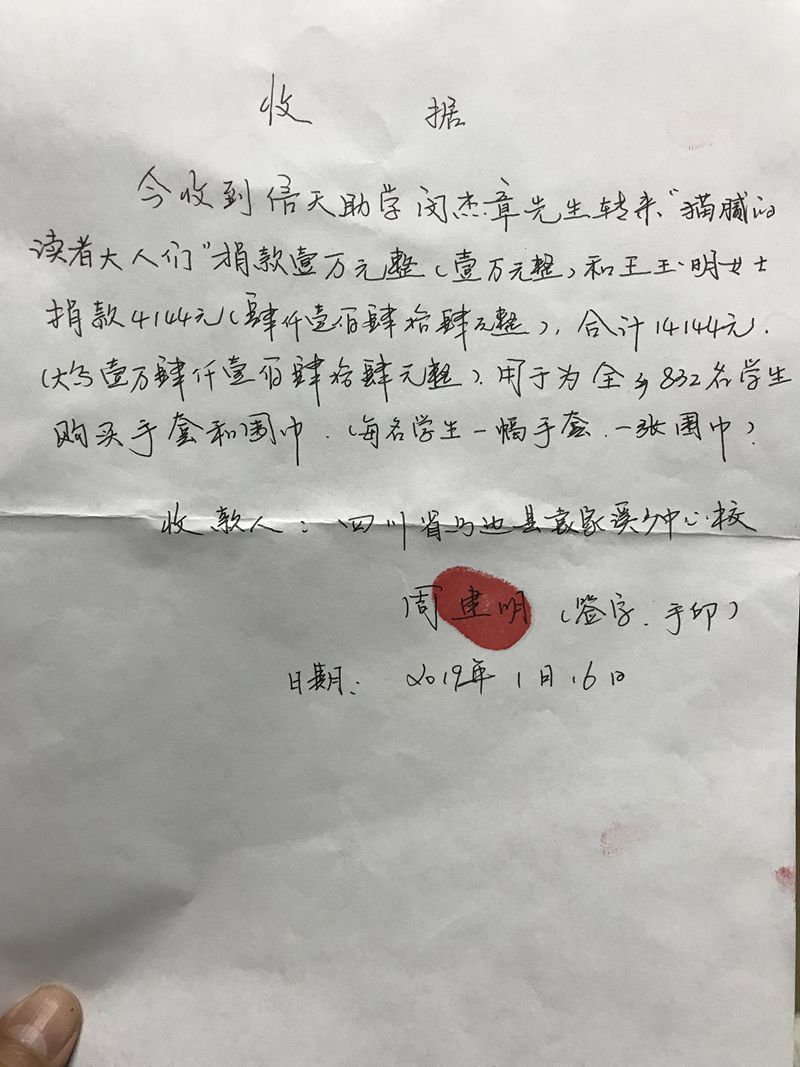 收 据
今收到信天助学闵杰章先生转来"猫腻的
读者大人们"捐款壹万元整(壹万元整)和王玉明女士
捐款4144元(肆仟壹佰肆拾肆元整),合计14144元.
(大写壹万肆仟壹佰肆拾肆元整).用于为全乡832名学生
购买手套和围巾.(每名学生一幅手套.一张围巾)
收款人:四川省马边县袁家溪乡中心校
周建明(签字.手印)
日期:2019年1月16日